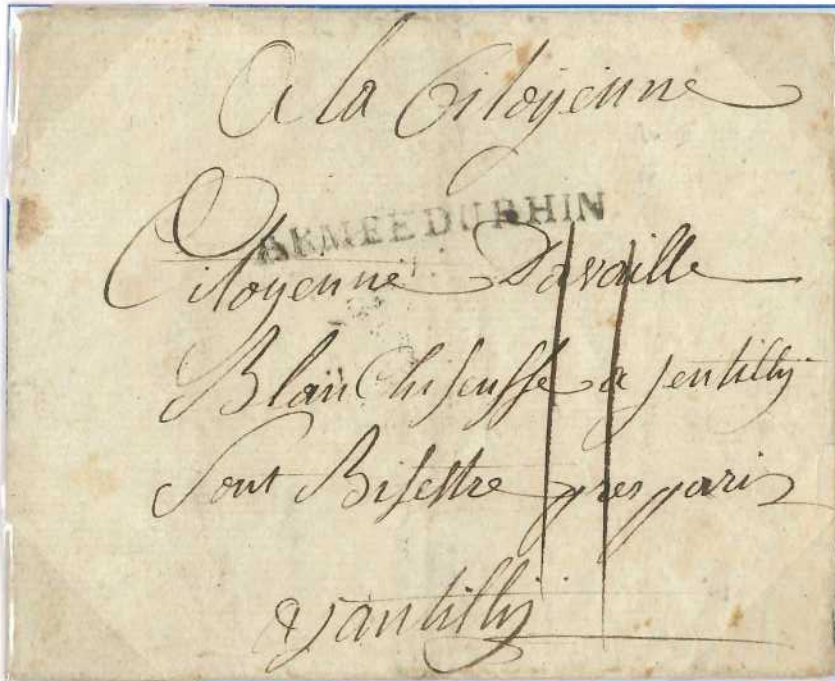 A la Citoÿenne
ARMEE DU RHIN
Citoyenne Davaille
Blanchisensse a jentilly
Sout Bisestre pres paris
a jantilly